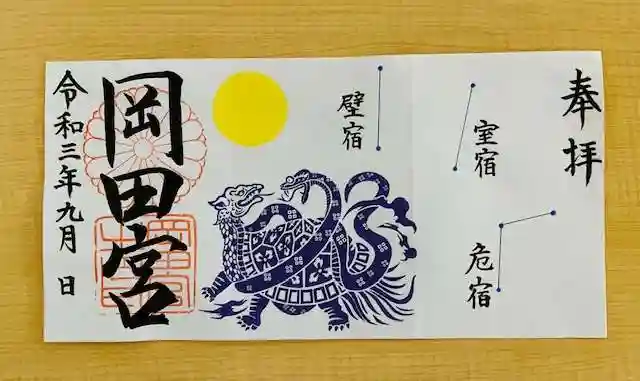 奉拝
室宿
危宿
壁宿
岡田宮
令和三年九月 日